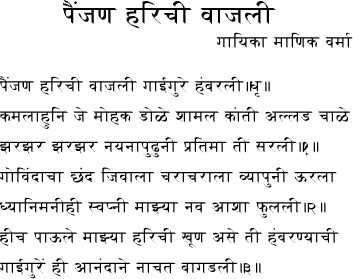 पैंजण हरिची वाजली
गायिका माणिक वर्मा
पैंजण हरिची वाजली गाईगुरे हंबरली॥धृ॥
कमलाहुनि जे मोहक डोळे शामल कांती अल्लड चाळे
झरझर झरझर नयनापुढुनी प्रतिमा ती सरली॥१॥
गोविंदाचा छंद जिवाला चराचराला व्यापुनी ऊरला
ध्यानिमनीही स्वप्नी माझ्या नव आशा फुलली॥२॥
हीच पाऊले माझ्या हरिची खूण असे ती हंबरण्याची
गाईगुरें ही आनंदाने नाचत बागडली॥३॥